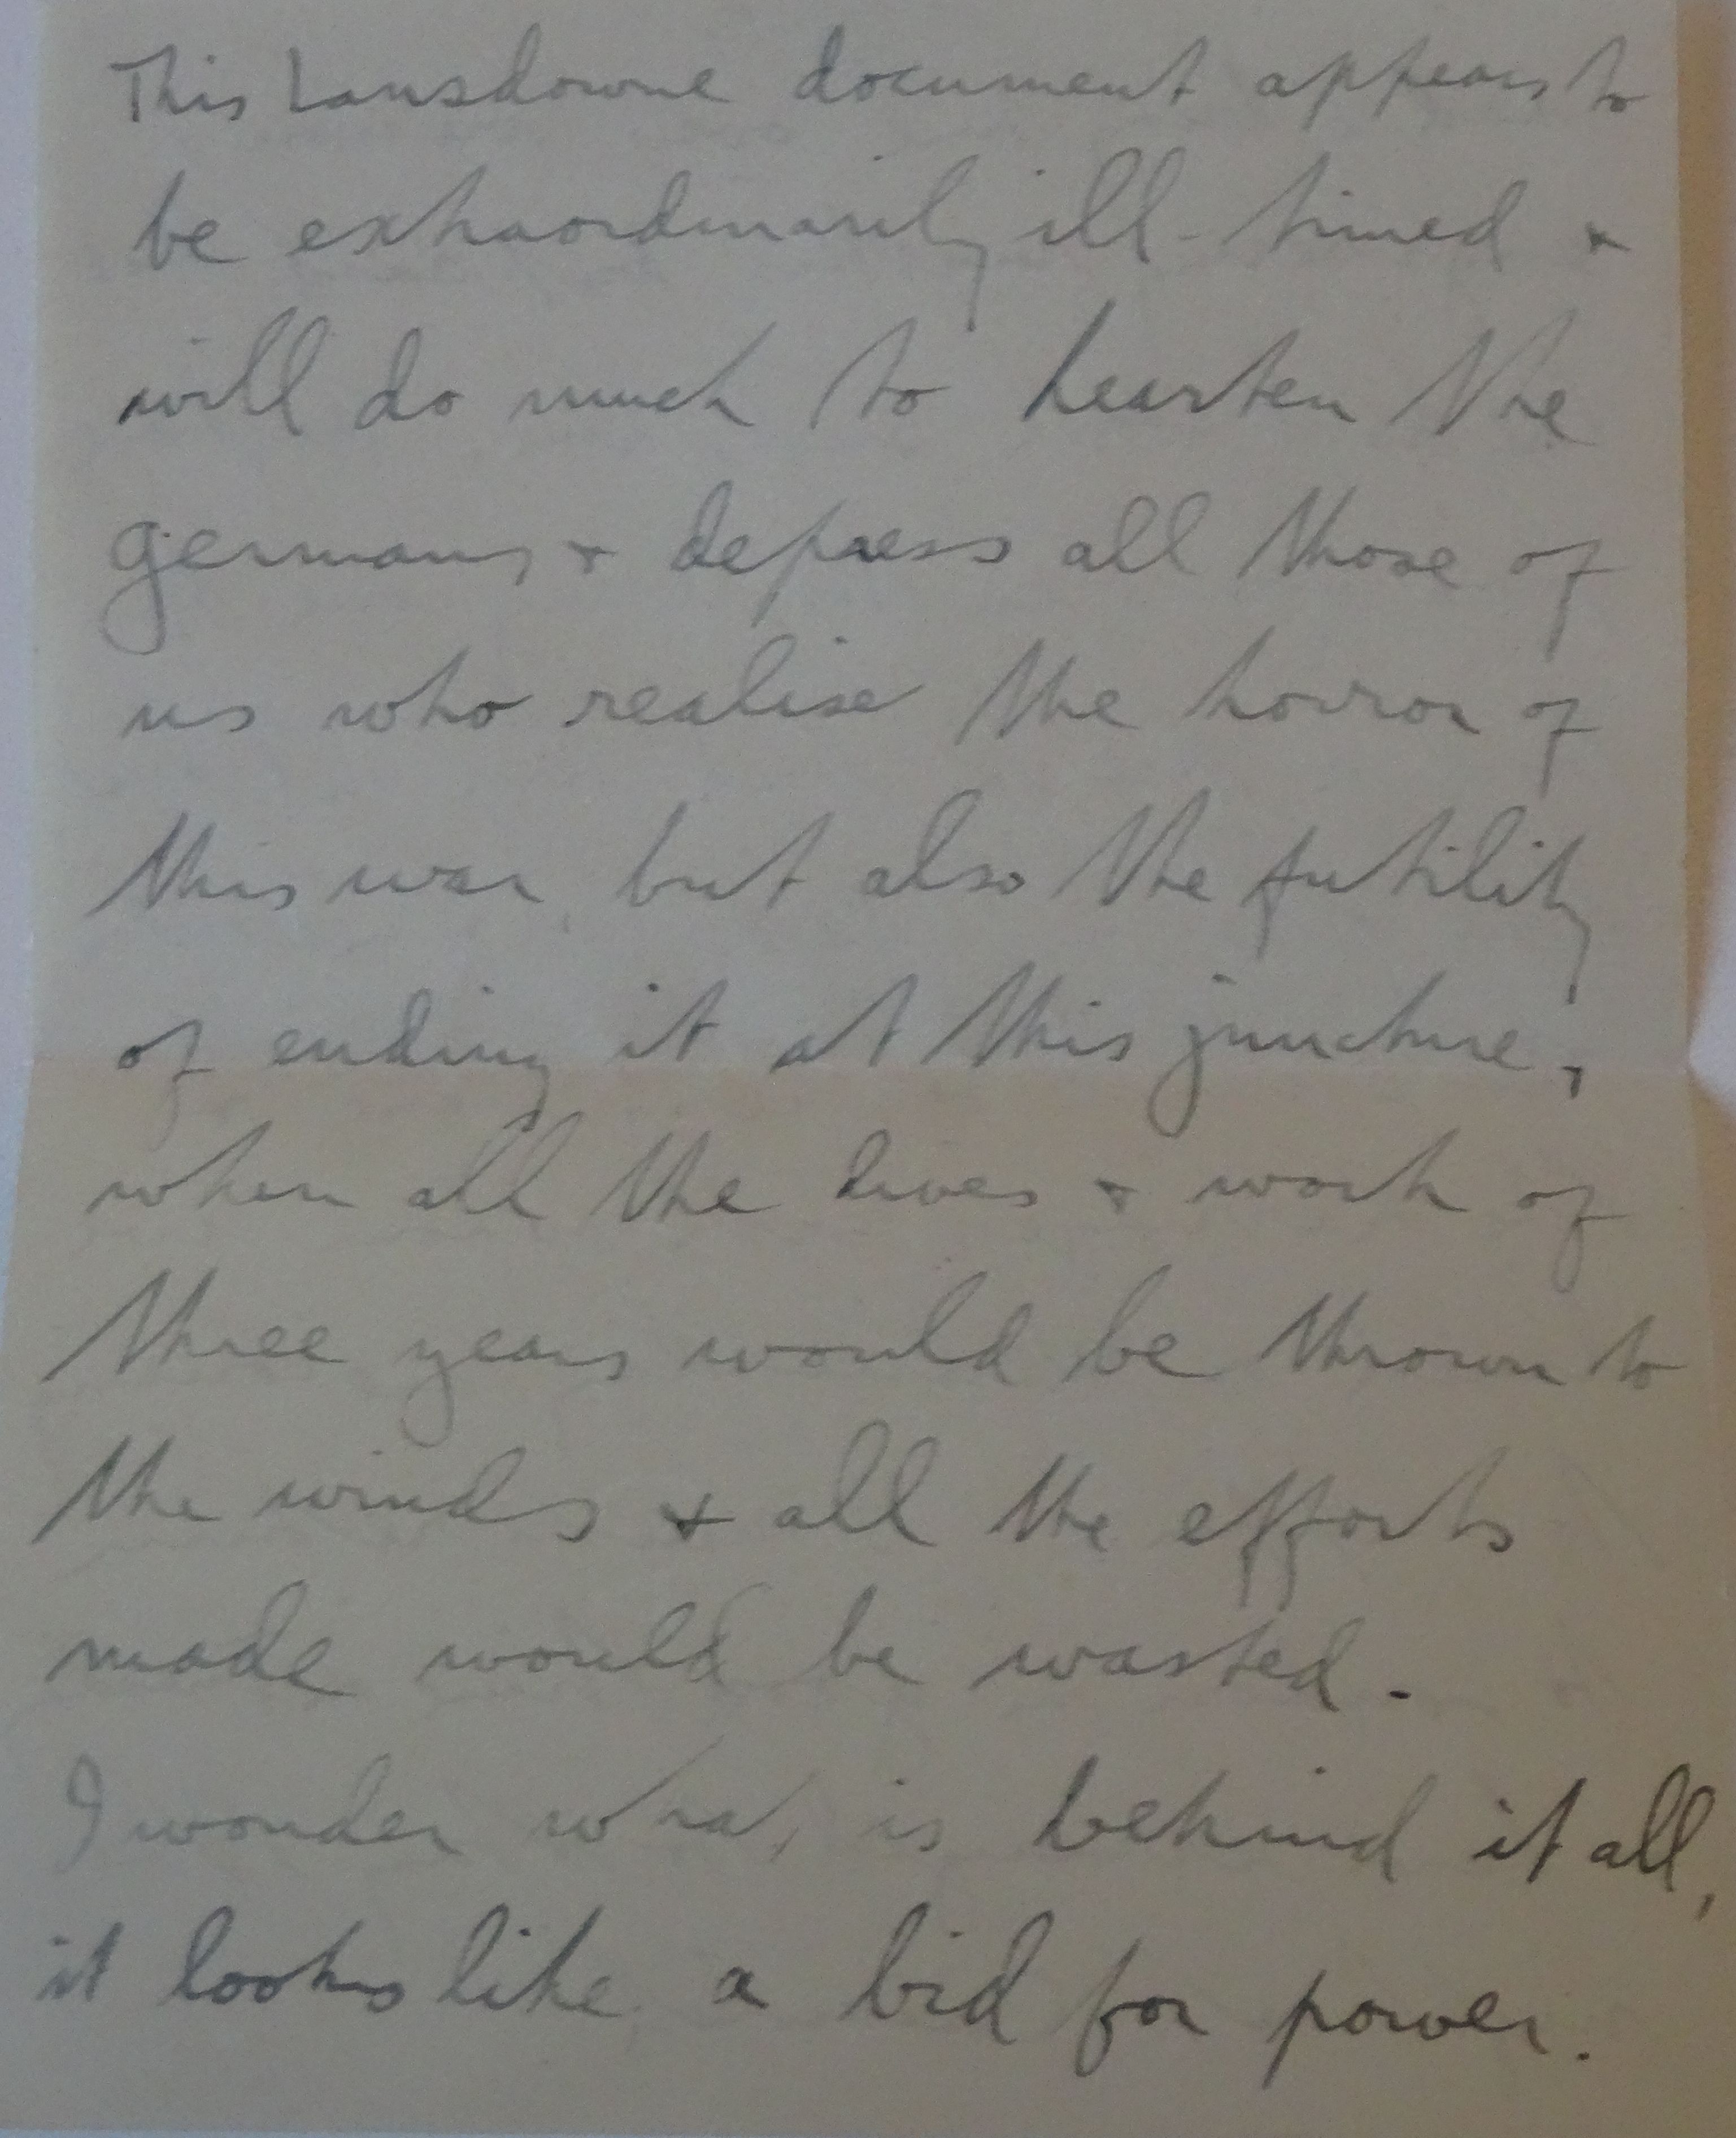 This Lansdowne document appears to
be extraordinarily ill-timed &
will do much to hearten the
germans & depress all those of
us who realise the horror of
this war, but also the futility
of ending it at this juncture,
when all the lives & work of
three years would be thrown to
the winds & all the efforts
made would be wasted.
I wonder what is behind it all,
it looks like a bid for power.